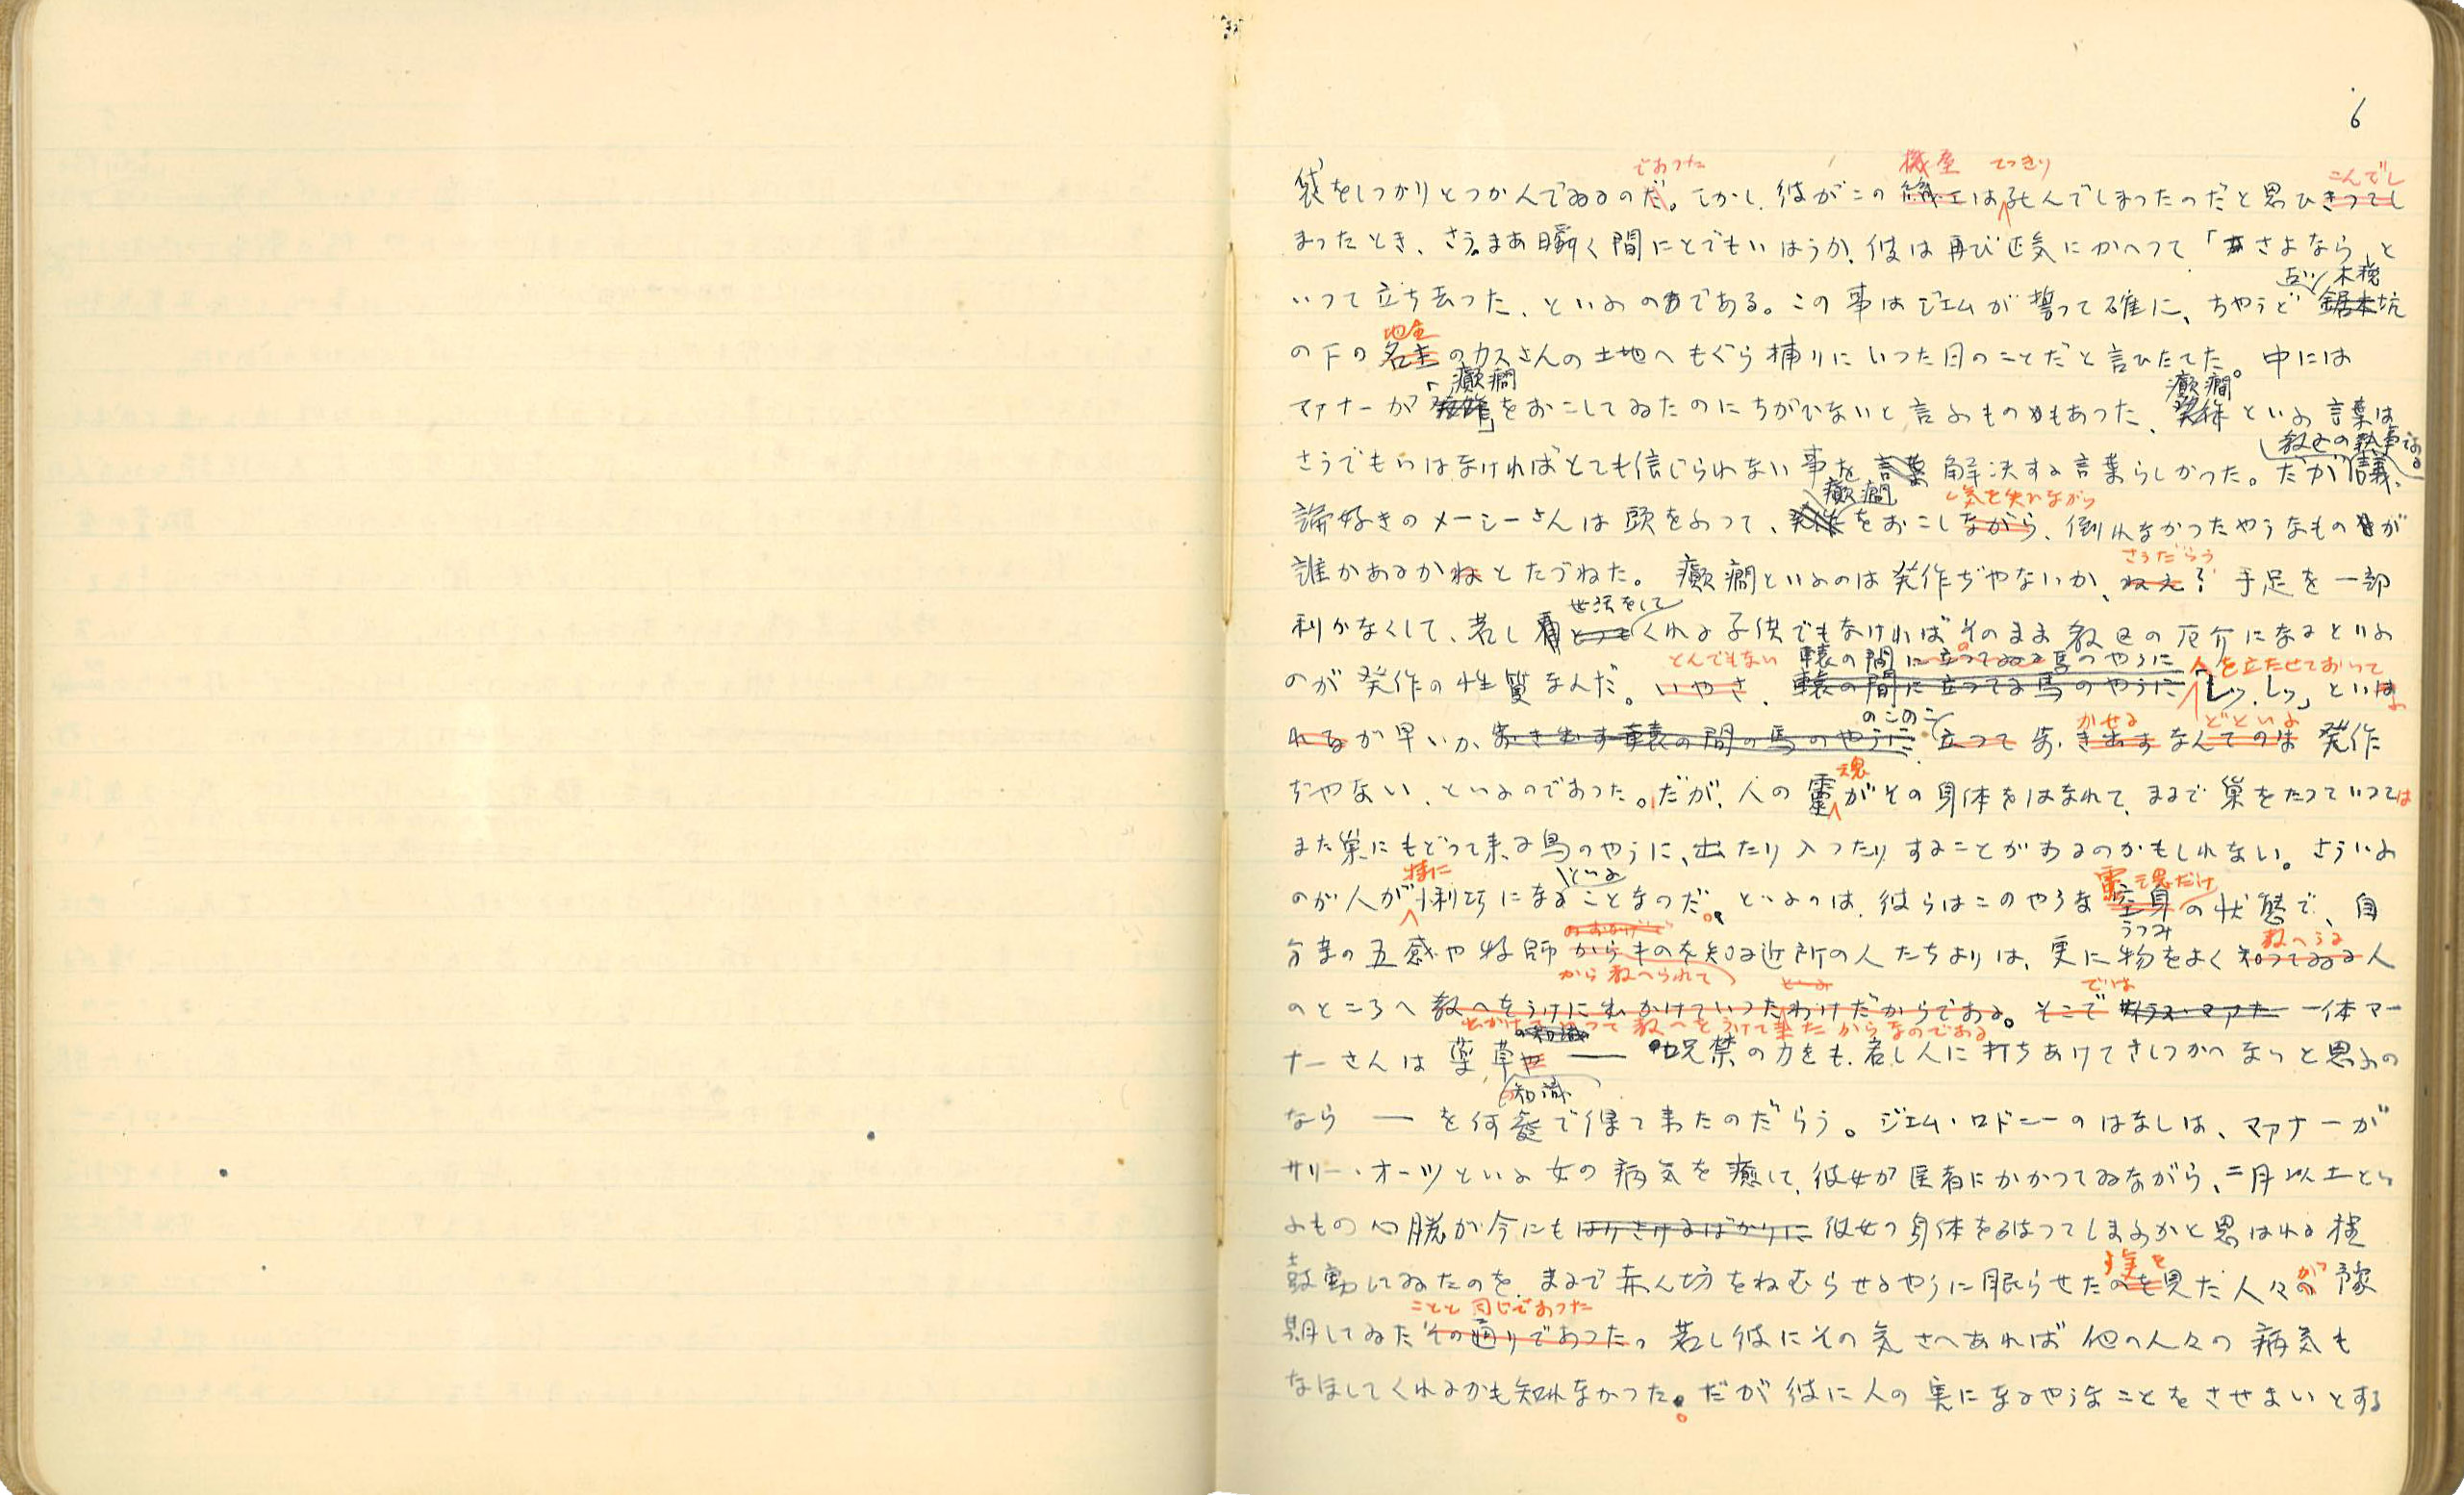 6
であつた 機屋 てつきり こんでし
袋をしつかりとつかんでゐるのだ。しかし、彼がこの織工は死んでしまつたのだと思ひきつてし
まつたとき、さうまあ瞬く間にとでもいはうか、彼は再び正気にかへつて「さよなら」と
古い 木挽
いつて立ち去つた、といふのである。この事はジエムが誓つて確に、ちやうど鋸木坑
地主
の下の名主のカスさんの土地へもぐら捕りにいつた日のことだと言ひたてた。中には
「癲癇 癲癇
マアナーが発作」をおこしてゐたのにちがひないと言ふものもあつた、発作といふ言葉は
教区の執事である
さうでもいはなければとても信じられない事を言葉解決する言葉らしかつた。だが議
癲癇 し気を失ひながら
論好きのメーシーさんは頭をふつて、発作をおこしながら、倒れなかつたやうなものが
さうだらう
誰かあるかねとたづねた。癲癇といふのは発作ぢやないか、ねえ? 手足を一部
世話をして
利かなくして、若し看とつてくれる子供でもなければそのまま教区の厄介になるといふ
とんでもない 轅の間に立つてゐる馬のやうに 人を立たせておいて
のが発作の性質なんだ。いやさ、轅の間に立つてる馬のやうに「しッ、しッ」といは
のこのこ かせる どといふ
れるが早いか、歩き出す轅の間の馬のやうに、立つて歩き出すなんてのは発作
魂
ぢやない、といふのであつた。だが、人の霊がその身体をはなれて、まるで巣をたつていつては
また巣にもどつて来る鳥のやうに、出たり入つたりすることがあるのかもしれない。さういふ
特に といふ 霊魂だけ
のが人が悧巧になることなのだ。といふのは、彼らはこのやうな空身の状態で、自
うつみ 教へうる
分達の五感や牧師からものを知る近所の人たちよりは、実に物をよく知つてゐる人
から教へられて では
のところへ教へをうけに出かけていつたわけだからである。そこでサイラス・マアナー一体マー
出かけていつて教へをうけて来たからなのである
ナーさんは薬草や ― 呪禁の力をも、若し人に打ちあけてさしつかへないと思ふの
の知識
なら ― を何処で得て来たのだらう。ジエム・ロドニーのはなしは、マアナーが
サリー・オーツといふ女の病気を癒して、彼女が医者にかかつてゐながら、二月以上とい
ふもの心臓が今にもはりさけるばかりに彼女の身体をばつてしまふかと思はれる程
鼓動してゐたのを、まるで赤ん坊をねむらせるやうに眠らせたのを見た人々の予
ことと同じであつた
期してゐたその通りであつた。若し彼にその気さへあれば他の人々の病気も
なほしてくれるかも知れなかつた。だが彼に人の実になるやうなことをさせまいとする